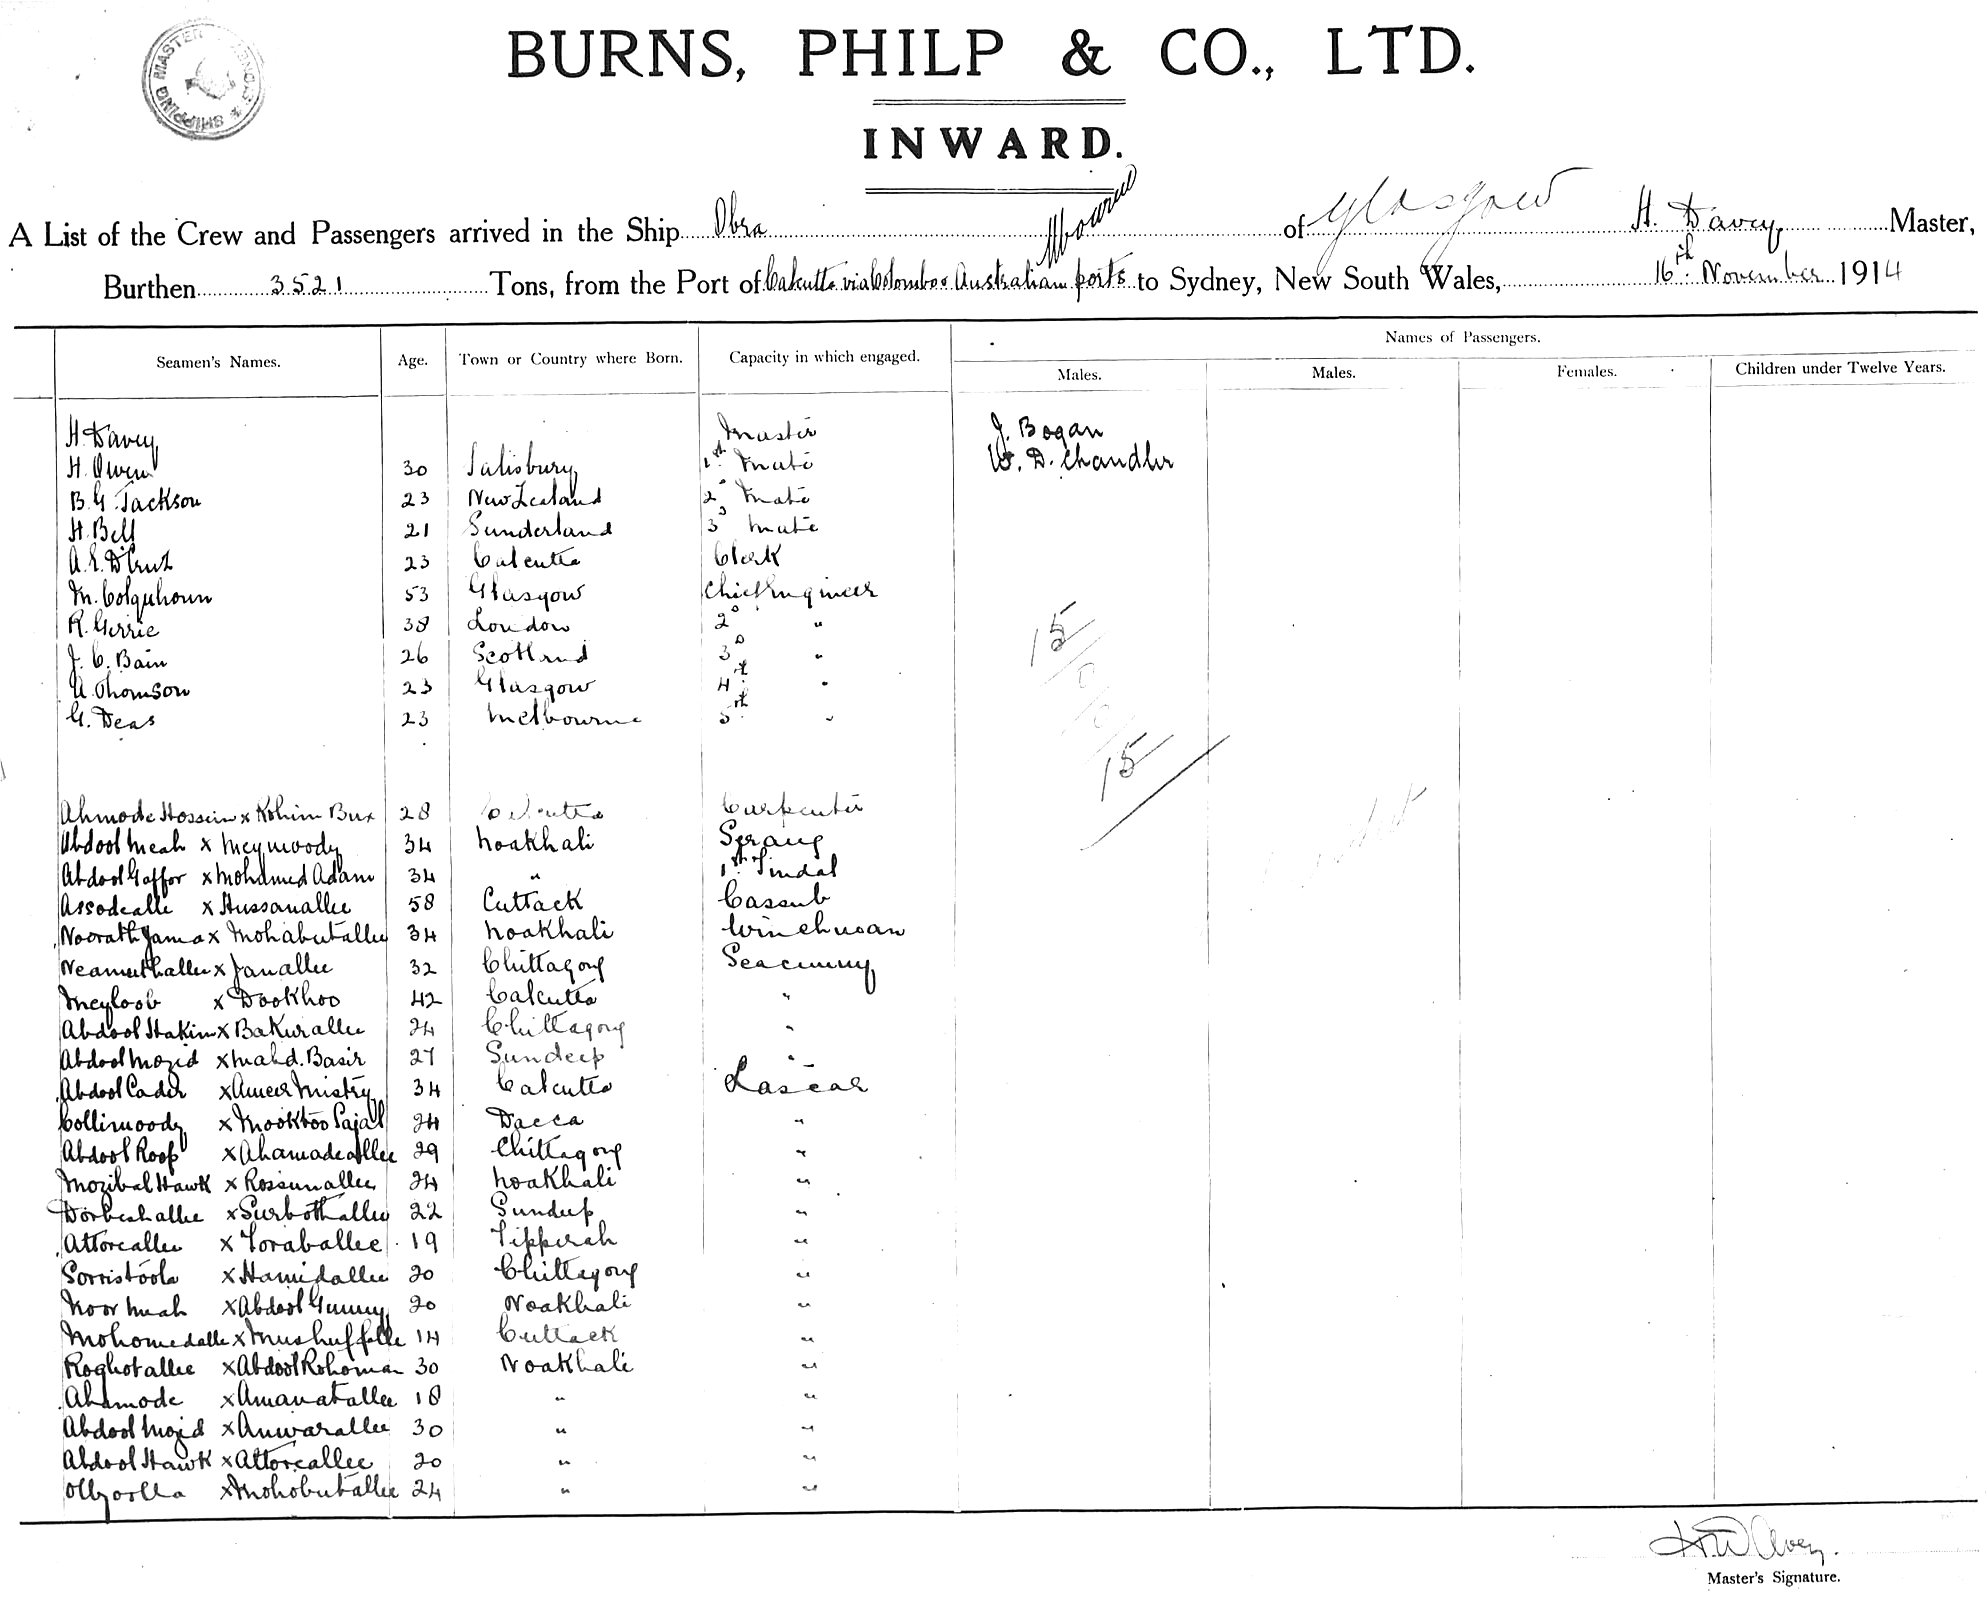 SHIPPING MASTER
BURNS, PHILP & CO., LTD.
INWARD.
A List of the Crew and Passengers arrived in the Ship Obra of Glasgow H. Davey Master,
Burthen 3521 Tons, from the Port of Calcutta via Colombo & Australian ports to Sydney, New South Wales, 16th November 1914
Seamen's Names. Age. Town or Country where Born. Capacity in which engaged. Names of Passengers.
Males. Males. Females. Children under Twelve Years.
H. Davey Master J. Bogan
H. Owen 30 Salisbury 1st Mate W. D. Chandler
B. G. Jackson 23 New Zealand 2d Mate
H. Bell 21 Sunderland 3d Mate
A. E. D'Cruz 23 Calcutta Clerk
M. Colquhoun 53 Glasgow Chief Engineer
R. Gerrie 38 London 2d "
J. C. Bain 26 Scotland 3d "
A. Thomson 23 Glasgow 4th "
G. Deas 23 Melbourne 5th "
15
15
Ahmode Hossein x Rohim Bux 28 Calcutta Carpenter
Abdool Meah x Meymoody 34 Noakhali Serang
Abdool Gaffor x Mohamed Adam 34 " 1st Tindal
Assodealle x Hussanallee 58 Cuttack Cassub
Noorath Jama x Mohabutallee 34 Noakhali Winchman
Neamuthallee x Janallee 32 Chittagong Seacunny
Meyloob x Dookhoo 42 Calcutta "
Abdool Hakim x Bakurallee 24 Chittagong "
Abdool Mozid x Mahd. Basir 27 Sundeep "
Abdool Cader x Ameer Mistry 34 Calcutta Lascar
Collimoody x Mooktoo Pajal 24 Dacca "
Abdool Roop x Ahamadeallee 29 Chittagong "
Mozibal Hawk x Rossunallee 24 Noakhali "
Dorbeshallee x Surbothallee 22 Sundeep "
Attoreallee x Toraballee 19 Tipperah "
Sorristoola x Hamidallee 20 Chittagong "
Noor Meah x Abdool Gunny 20 Noakhali "
Mohomedalle x Mushuffalle 14 Cuttack "
Roghotallee x Abdool Rohoman 30 Noakhali "
Ahamode x Amanatallee 18 " "
Abdool Mozid x Anwarallee 30 " "
Abdool Hawk x Attoreallee 20 " "
x Mohobutallee 24 " "
H Davey.
Master's Signature.